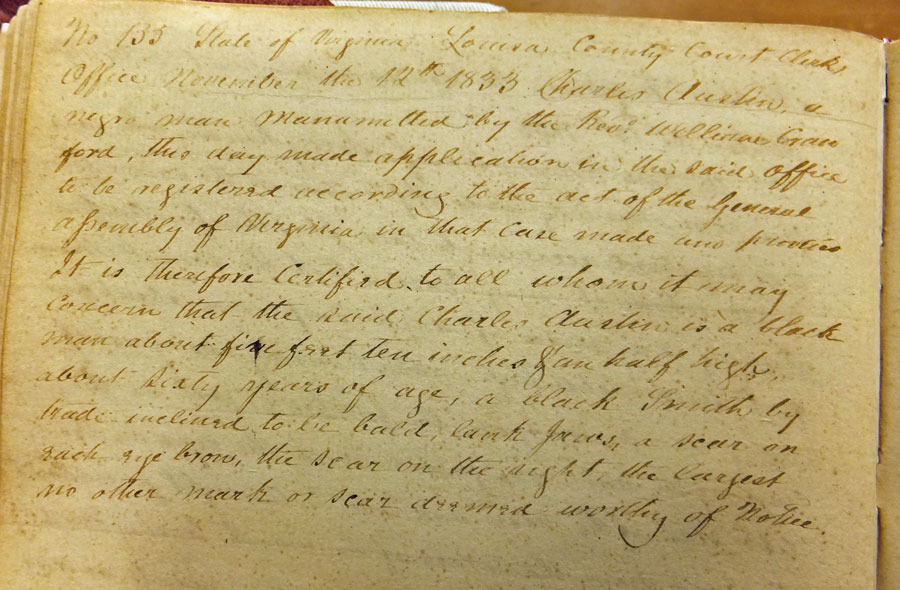 No 135 State of Virginia Louisa County Court Clerks
Office November the 12th 1833 Charles Austin, a
negro man manumitted by the Revd. William Craw
ford, this day made application in the said office
to be registered according to the act of the General
assembly of Virginia in that case made and provided
It is therefore Certified to all whom it may
Concern that the said Charles Austin is a black
man about five feet ten inches & an half high,
about Sixty years of age, a black Smith by
trade inclined to be bald, lank Jaws, a scar on
each eye brow, the scar on the right, the largest
no other mark or scar deemed worthy of Notice.